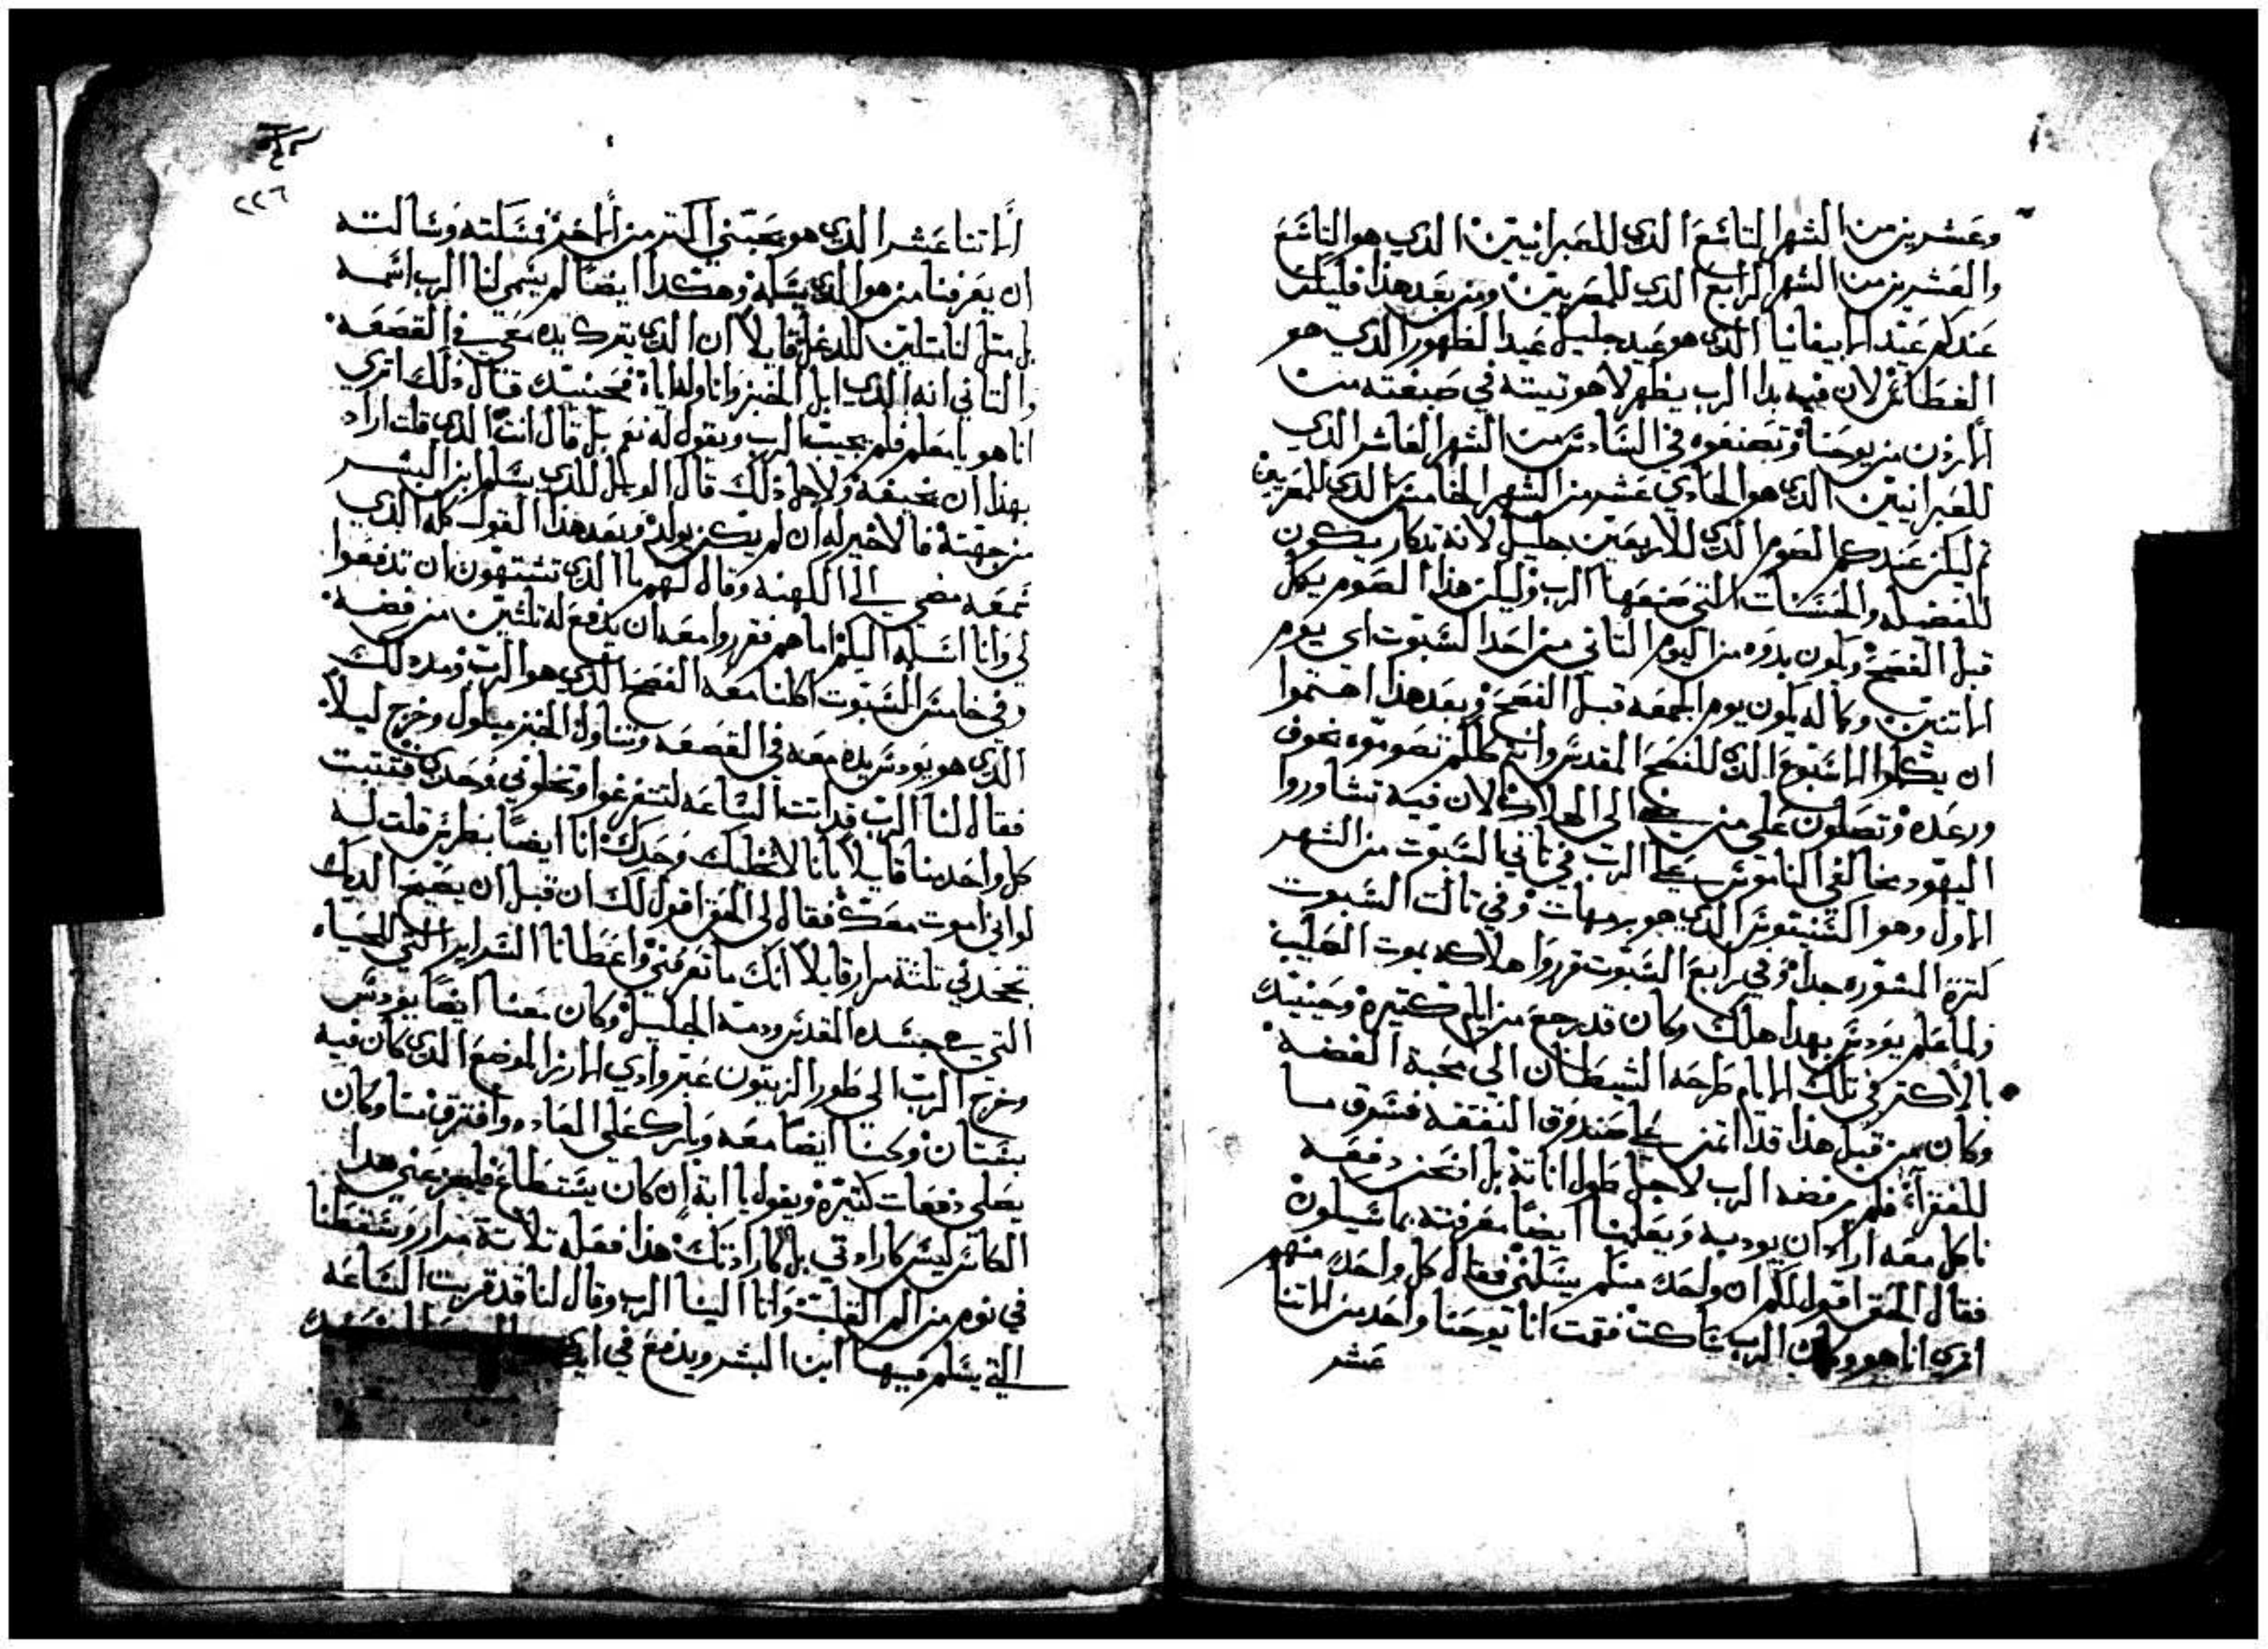 وعشرين من الشهر التاسع الذي للعبرانيين الذي هو التاسع
والعشرين من الشهر الرابع الذي للمصريين ومن بعد هذا فليكن
عندكم عيد الابيفانيا الذي هو عيد جليل عيد الظهور الذي هو
الغطاس لان فيه بدا الرب يظهر لاهوتيته في صبغته من
الاردن من يوحنا وتصنعوه في السادس من الشهر العاشر الذي
للعبرانيين الذي هو الحادي عشر من الشهر الخامس الذي للمصريين
ثم ليكن عندكم الصوم الذي للاربعين جليل لانه تدكار يكون
للفضيله والحسنات التي صنعها الرب وليكن هذا الصوم يكمل
قبل الفصح ويكون بدوه من اليوم التاني من احد السبوت اي يوم
الاتنين وكماله يكون يوم الجمعه قبل الفصح وبعد هذا اهتموا
ان يكملوا الاسبوع الذي للفصح المقدس وانتم كلكم تصوموه بخوف
ورعده وتصلون على من الى الهلاك لان فيه تشاوروا
اليهود مخالفي الناموس على الرب في تاني السبوت من الشهر
الاول وهو الذي هو برمهات وفي تالت السبوت
كترة المشوره جدا وفي رابع السبوت قرروا هلاكه بموت الصليب
ولما علم يودس بهدا هلك وكان قد رجع من ايام كتيرة وحينيد
بالاكتر في تلك الايام طرحه الشيطان الي محبة الفضه
وكان من قبل هذا قد اتمن على صندوق النفقه فسرق ما
للفقرآء فلم يرفضه الرب لاجل طول اناته بل ونحن دفعه
ناكل معه اراد ان يوديه ويعلمنا ايضا معرفته بما سيكون
فقال الحق اقول لكم ان واحد منكم يسلمني فقال كل واحد منهم
اتري انا هو وكان الرب ساكت فقمت انا يوحنا واحد من الاتنا
عشر
٢٢٦
الاتنا عشر الذي هو يحبني اكتر من الاخر فسكته وسالته
ان يعرفنا من هو الذي يسلمه وهكدا ايضا لم يسمي لنا الرب اسمه
بل متل لنا متلين للدغل قايلا ان الذي يترك يده معي في القصعه
والتاني انه الذي ابل الخبز وانا وله اياه فحينيد قال ذلك اتري
انا هو يا معلم فلم يجيب الرب ويقول له نعم بل قال انت الذي قلت اراد
بهذا ان يخيفه ولاجل ذلك قال الويل للذي يسلم ابن البشر
من جهته فالاخير له ان لم يكن يولد وبعد هذا القول كله الذي
سمعه مضي الى الكهنه وقال لهم ما الذي تشتهون ان تدفعوا
لي وانا اسلمه اليكم اما هم فقرروا معه ان يدفع له تلتين من فضه
وفي خامس السبوت اكلنا معه الفصح الذي هو الرب ومد ذلك
الذي هو يودس يده معه في القصعه وتناول الخبز مبلول وخرج ليلا
فقال لنا الرب قد اتت الساعه لتتفرغوا وتخلوني وحدي فتتبت
كل واحد منا قايلا انا لا نخليك وحدك انا ايضا بطرس قلت له
لو اني اموت معك فقال لي الحق اقول لك ان قبل ان يصيح الديك
تجحدني تلتة مرار قايلا انك ما تعرفني واعطانا السراير التي للحياه
التي هي جسده المقدس ودمه الجليل وكان معنا ايضا يودس
وخرج الرب الي طور الزيتون عبر وادي الارز الموضع الذي كان فيه
بستان وكنا ايضا معه وبارك على العاده وافترق منا وكان
يصلي دفعات كتيره ويقول يا ابة ان كان يستطاع فليعبر عني هدا
الكاس ليس كارادتي بل كارادتك هذا فعله تلاتة مرار وسقطنا
في نوم من الم القلب واتا الينا الرب وقال لنا قد قربت الساعه
التي يسلم فيها ابن البشر ويدفع في ايدي